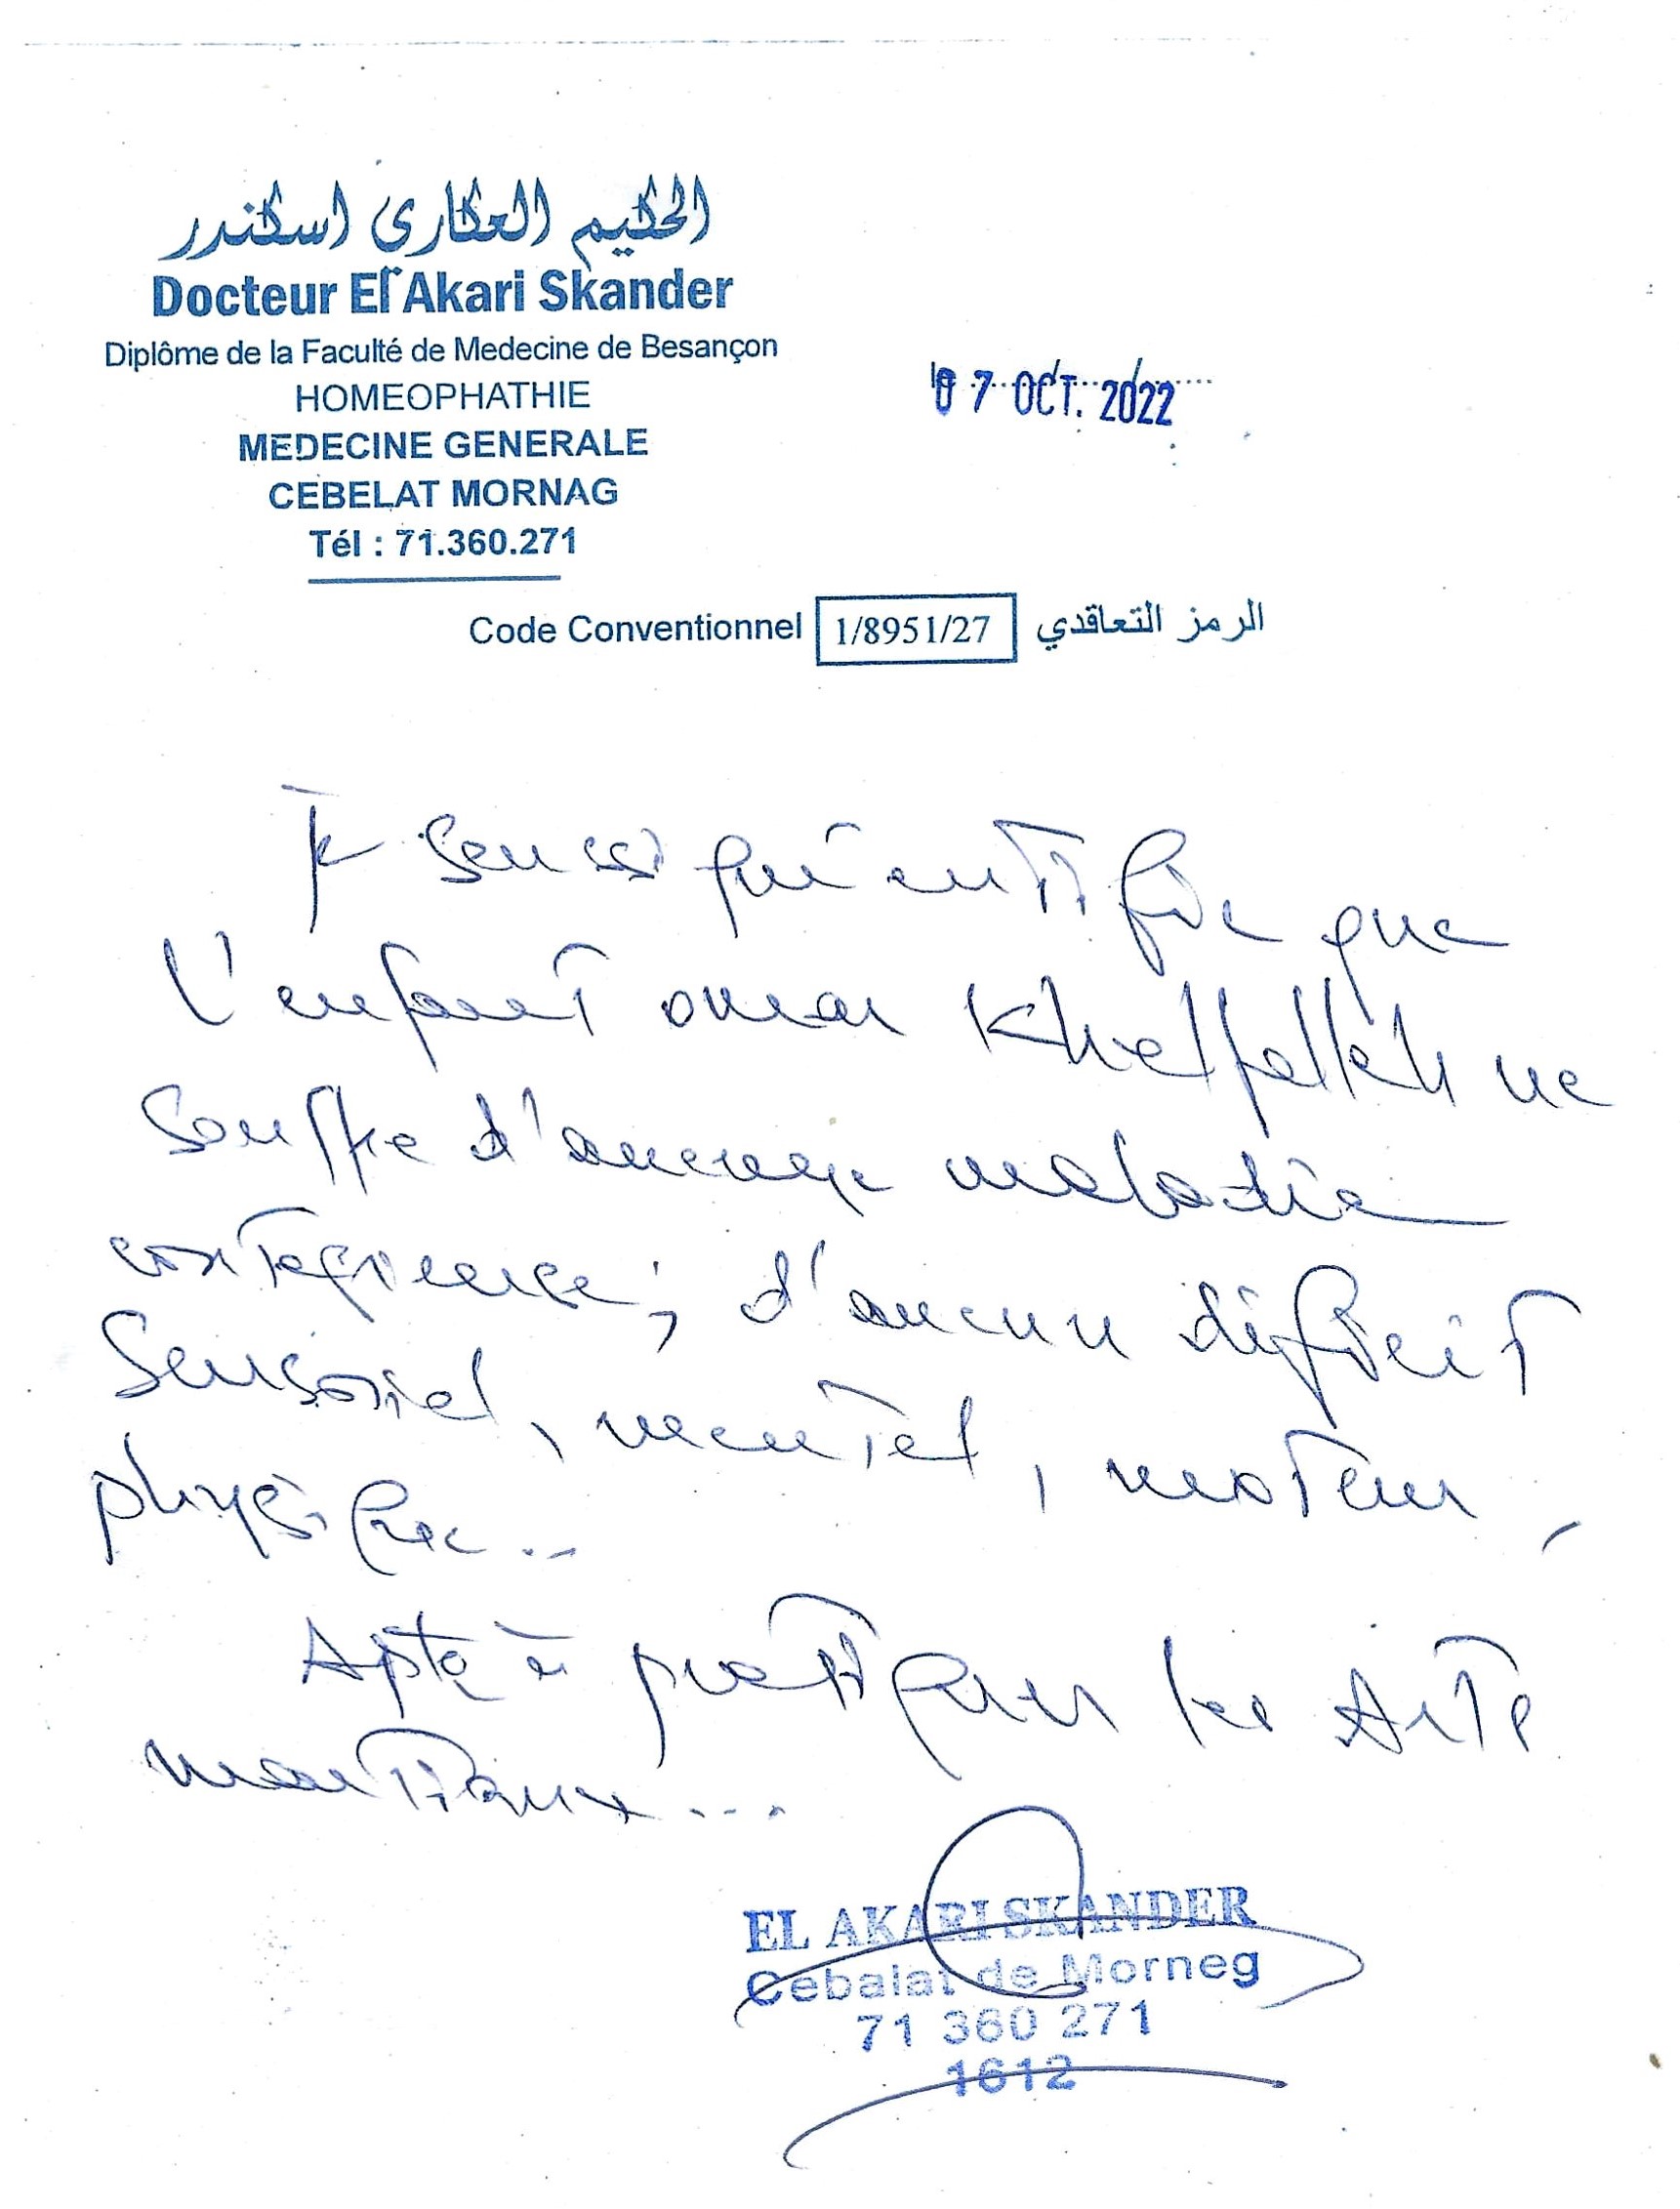 الحكيم العكاري اسكندر
Docteur El Akari Skander
Diplôme de la Faculté de Medecine de Besançon
HOMEOPHATHIE
MEDECINE GENERALE
CEBELAT MORNAG
Tél : 71.360.271
07 OCT. 2022
Code Conventionnel 1/8951/27 الرمز التعاقدي
Je soussigné certifie que
l'enfant omar Khelfallah ne
souffre d'aucune maladie
contagieuse, d'aucun déficit
sensoriel, mental, moteur,
physique..
Apte à pratiquer les Arts
martiaux...
EL AKARI SKANDER
Cebalat de Morneg
71 360 271
1612